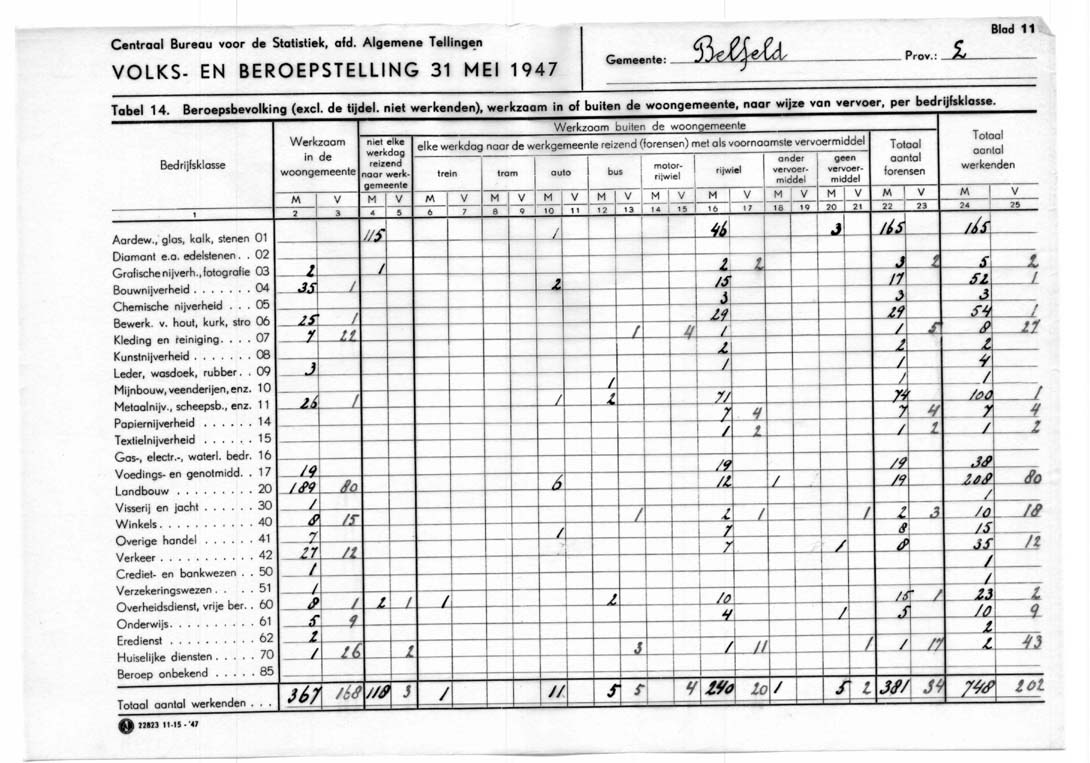 Blad 11
Centraal Bureau voor de Statistiek, afd. Algemene Tellingen
VOLKS- EN BEROEPSTELLING 31 MEI 1947
Gemeente: Belfeld Prov.: L
Tabel 14. Beroepsbevolking (excl. de tijdel. niet werkenden), werkzaam in of buiten de woongemeente, naar wijze van vervoer, per bedrijfsklasse.
Bedrijfsklasse
Werkzaam in de woongemeente
Werkzaam buiten de woongemeente
niet elke werkdag reizend naar werk-gemeente
elke werkdag naar de werkgemeente reizend (forensen) met als voornaamste vervoermiddel
trein tram auto bus motor-rijwiel rijwiel ander vervoer-middel geen vervoer-middel
Totaal aantal forensen
Totaal aantal werkenden
M V M V M V M V M V M V M V M V M V M V M V M V
1 2 3 4 5 6 7 8 9 10 11 12 13 14 15 16 17 18 19 20 21 22 23 24 25
Aardew., glas, kalk, stenen 01 115 1 46 3 165 165
Diamant e.a. edelstenen. . 02
Grafische nijverh., fotografie 03 2 1 2 2 3 2 5 2
Bouwnijverheid . . . . . . . 04 35 1 2 15 17 52 1
Chemische nijverheid . . . 05 3 3 3
Bewerk. v. hout, kurk, stro 06 25 1 29 29 54 1
Kleding en reiniging. . . . 07 7 22 1 4 1 1 5 8 27
Kunstnijverheid . . . . . . 08 2 2 2
Leder, wasdoek, rubber. . 09 3 1 1 4
Mijnbouw, veenderijen, enz. 10 1 1 1
Metaalnijv., scheepsb., enz. 11 26 1 1 2 71 74 100 1
Papiernijverheid . . . . . . 14 7 4 7 4 7 4
Textielnijverheid . . . . . . 15 1 2 1 2 1 2
Gas-, electr.-, waterl. bedr. 16
Voedings- en genotmidd. . 17 19 19 19 38
Landbouw . . . . . . . . . 20 189 80 6 12 1 19 208 80
Visserij en jacht . . . . . . 30 1 1
Winkels. . . . . . . . . . . 40 8 15 1 2 1 1 2 3 10 18
Overige handel . . . . . . 41 7 1 7 8 15
Verkeer . . . . . . . . . . 42 27 12 7 1 8 35 12
Crediet- en bankwezen . . 50 1 1
Verzekeringswezen. . . . . 51 1 1
Overheidsdienst, vrije ber. . 60 8 1 2 1 1 2 10 15 1 23 2
Onderwijs. . . . . . . . . . 61 5 9 4 1 5 10 9
Eredienst . . . . . . . . . 62 2 2
Huiselijke diensten . . . . . 70 1 26 2 3 1 11 1 1 17 2 43
Beroep onbekend . . . . . 85
Totaal aantal werkenden . . . 367 168 118 3 1 11 5 5 4 240 20 1 5 2 381 34 748 202
22823 11-15-'47